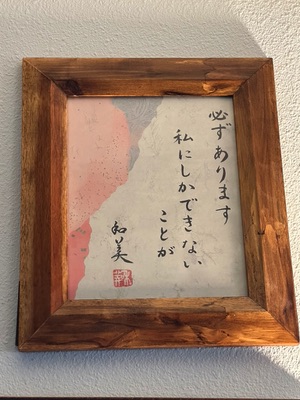 必ずあります
私にしかできない
ことが
和美